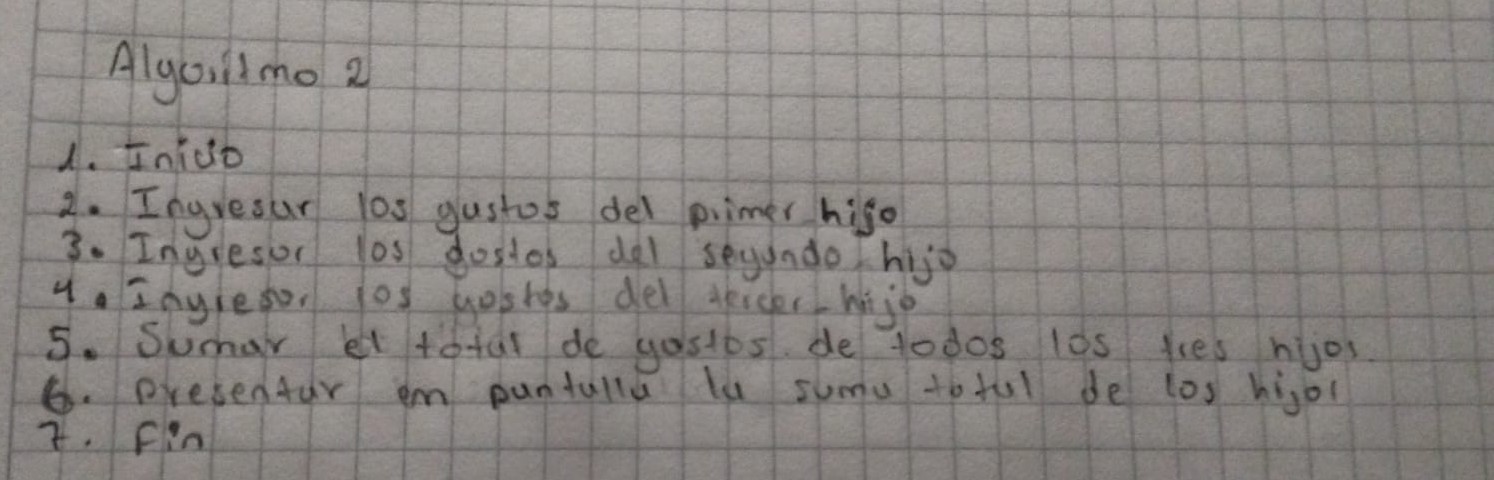 Algoritmo 2
1. Inicio
2. Ingresar los gastos del primer hijo
3. Ingresar los gastos del segundo hijo
4. Ingresar los gastos del tercer hijo
5. Sumar el total de gastos de todos los tres hijos.
6. Presentar em pantalla la suma total de los hijos
7. Fin